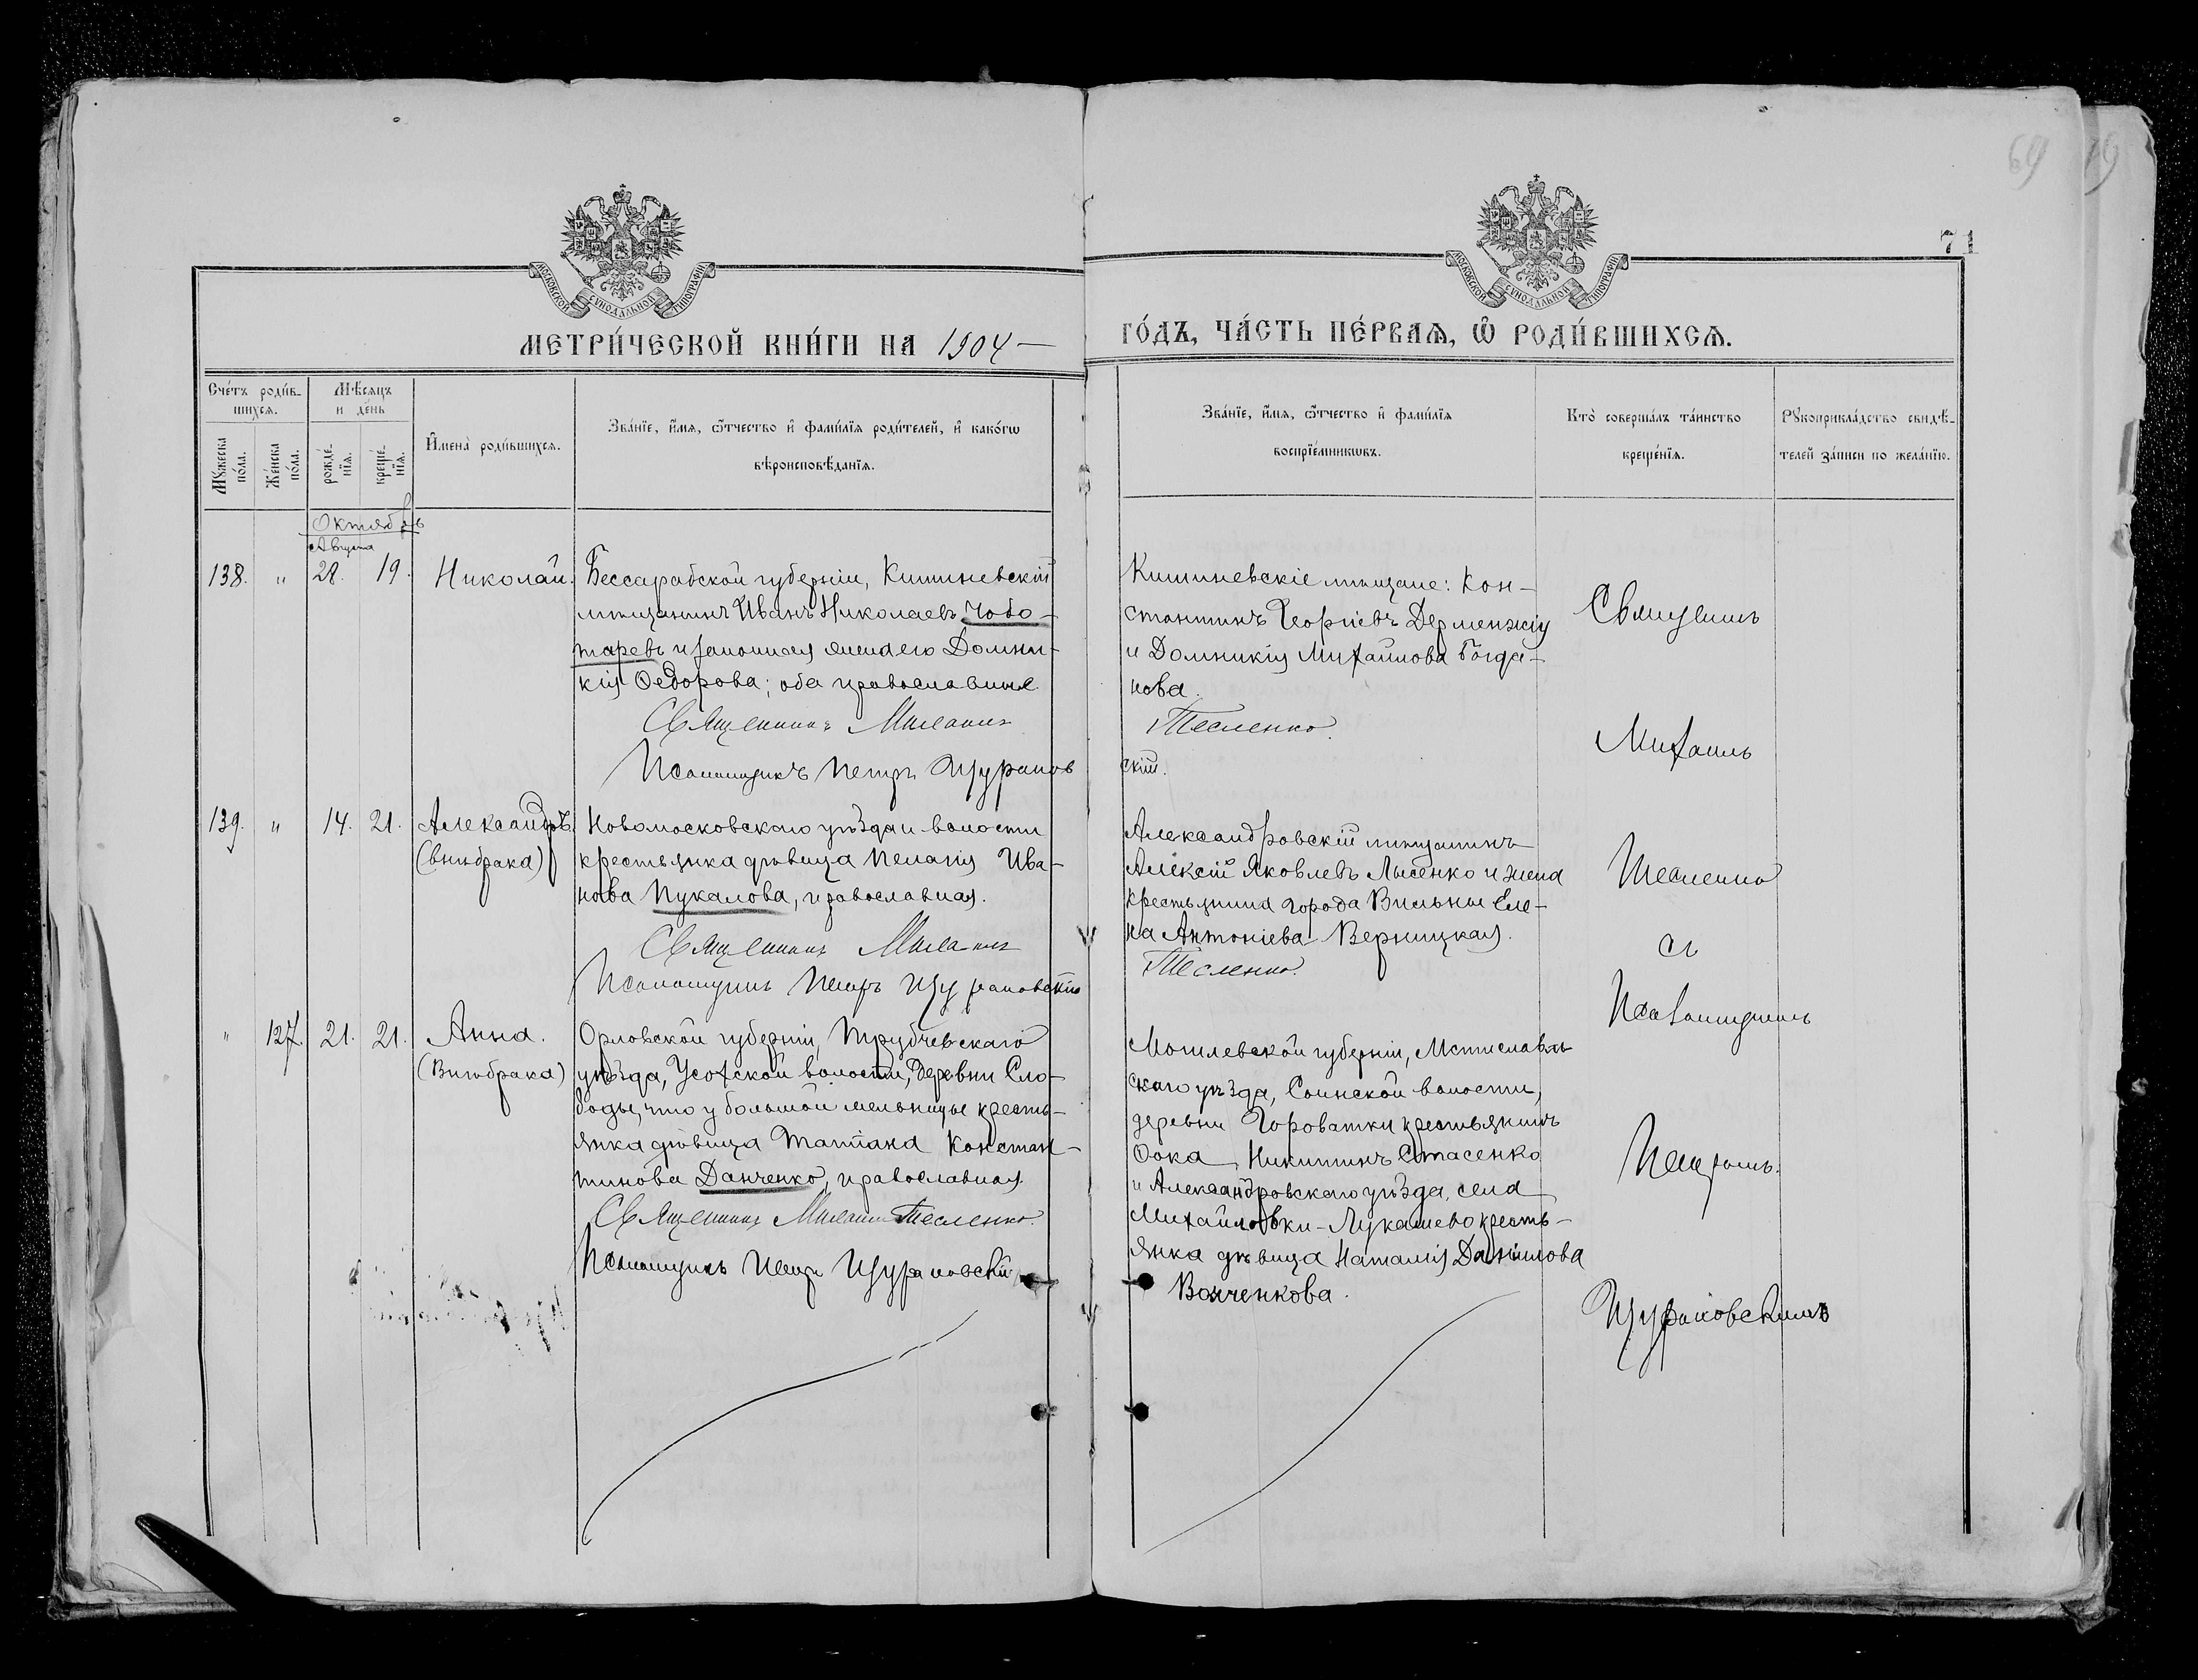 69
19
71
МОСКОВСКОЙ СУНОДАЛЬНОЙ ТИПОГРАФІИ
МОСКОВСКОЙ СУНОДАЛЬНОЙ ТИПОГРАФІИ
МЕТРИ́ЧЕСКОЙ КНИ́ГИ НА 1904 —
ГО́ДЪ, ЧА́СТЬ ПЕ́РВАѦ, Ѡ҆ РОДИ́ВШИХСѦ.
Сче́тъ роди́в-
шихсѧ.
Мѣ́сѧцъ
и де́нь
Мꙋ́жеска
по́ла.
Же́нска
по́ла.
рожде́-
нїѧ.
креще́-
нїѧ.
И҆мена̀ роди́вшихсѧ.
Зва́нїе, и҆́мѧ, ѻ҆́тчество и҆ фами́лїѧ роди́телей, и҆ како́гѡ
вѣроисповѣ́данїѧ.
Зва́нїе, и҆́мѧ, ѻ҆́тчество и҆ фами́лїѧ
воспрїе́мникѡвъ.
Кто̀ соверша́лъ та́инство
креще́нїѧ.
Рꙋкоприкла́дство свидѣ́-
телей за́писи по жела́нїю.
Октябрь
Августа
138. " 28. 19. Николай.
Бессарабской губерніи, Кишиневскій
мѣщанинъ Иванъ Николаевъ Чобо-
таревъ и законная жена его Домни-
кія Ѳедорова; оба православные.
Священникъ Михаилъ
Псаломщикъ Петръ Щуранов
Кишиневскіе мѣщане: Кон-
стантинъ Георгіевъ Дерменжіу
и Домникія Михайлова Богда-
нова.
Тесленко.
скій.
139. " 14. 21. Александръ.
(внѣ брака)
Новомосковскаго уѣзда и волости
крестьянка дѣвица Пелагія Ива-
нова Пукалова, православная.
Священникъ Михаилъ
Псаломщикъ Петръ Щурановскій
Александровскій мѣщанинъ
Алексій Яковлевъ Лысенко и жена
крестьянина города Вильны Еле-
на Антоніева Верницкая.
Тесленко.
" 127. 21. 21. Анна.
(Внѣ брака)
Орловской губерніи, Трубчевскаго
уѣзда, Усохской волости, деревни Сло-
боды, что у большой мельницы кресть-
янка дѣвица Татіана Констан-
тинова Данченко, православная.
Священникъ Михаилъ Тесленко.
Псаломщикъ Петръ Щурановскій
Могилевской губерніи, Мстиславль-
скаго уѣзда, Соинской волости,
деревни Гороватки крестьянинъ
Ѳока Никитинъ Стасенко
и Александровскаго уѣзда, села
Михайловки-Лукашево кресть-
янка дѣвица Наталія Данилова
Волченкова.
Священникъ
Михаилъ
Тесленко
съ
Псаломщикомъ
Петромъ
Щурановскимъ